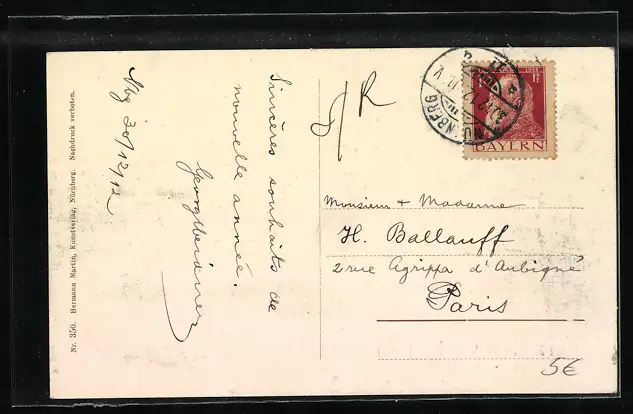 Nbg 30/12/12
Sincères souhaits de
nouvelle année.
Georg Meidner
J R
NÜRNBERG
BAYERN
Monsieur + Madame
H. Ballauff
2 rue Agrippa d'Aubigné
Paris
5€
Nr. 350. Hermann Martin, Kunstverlag, Nürnberg. Nachdruck verboten.